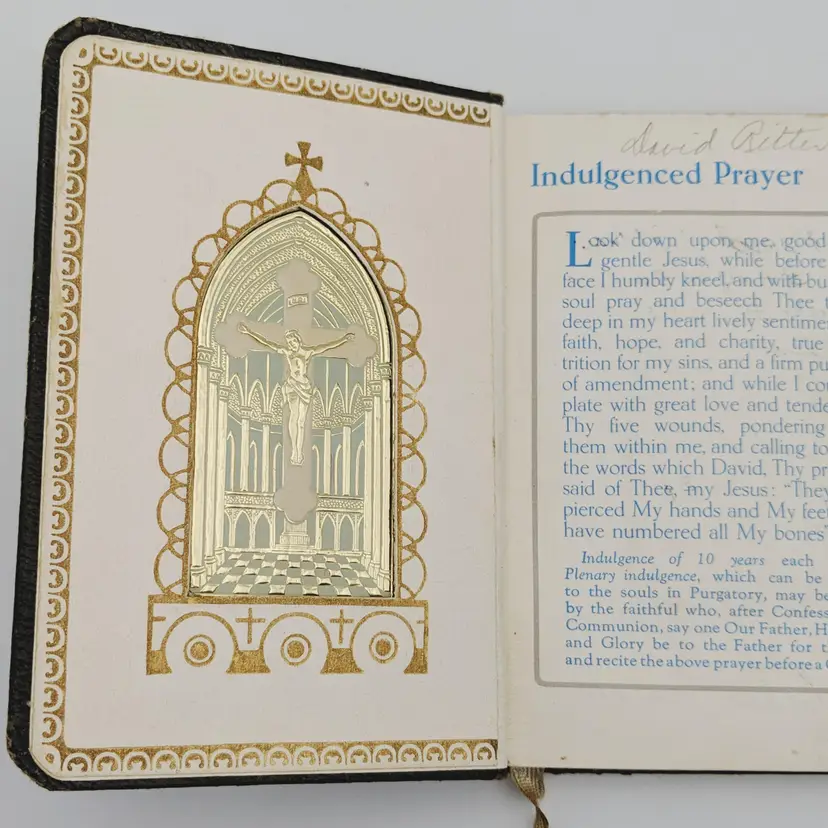 David Ritter
Indulgenced Prayer
Look down upon me, good
gentle Jesus, while before
face I humbly kneel, and with bu
soul pray and beseech Thee t
deep in my heart lively sentime
faith, hope, and charity, true
trition for my sins, and a firm pu
of amendment; and while I co
plate with great love and tende
Thy five wounds, pondering
them within me, and calling to
the words which David, Thy pr
said of Thee, my Jesus: "They
pierced My hands and My feet
have numbered all My bones"
Indulgence of 10 years each
Plenary indulgence, which can be
to the souls in Purgatory, may be
by the faithful who, after Confess
Communion, say one Our Father, H
and Glory be to the Father for t
and recite the above prayer before a